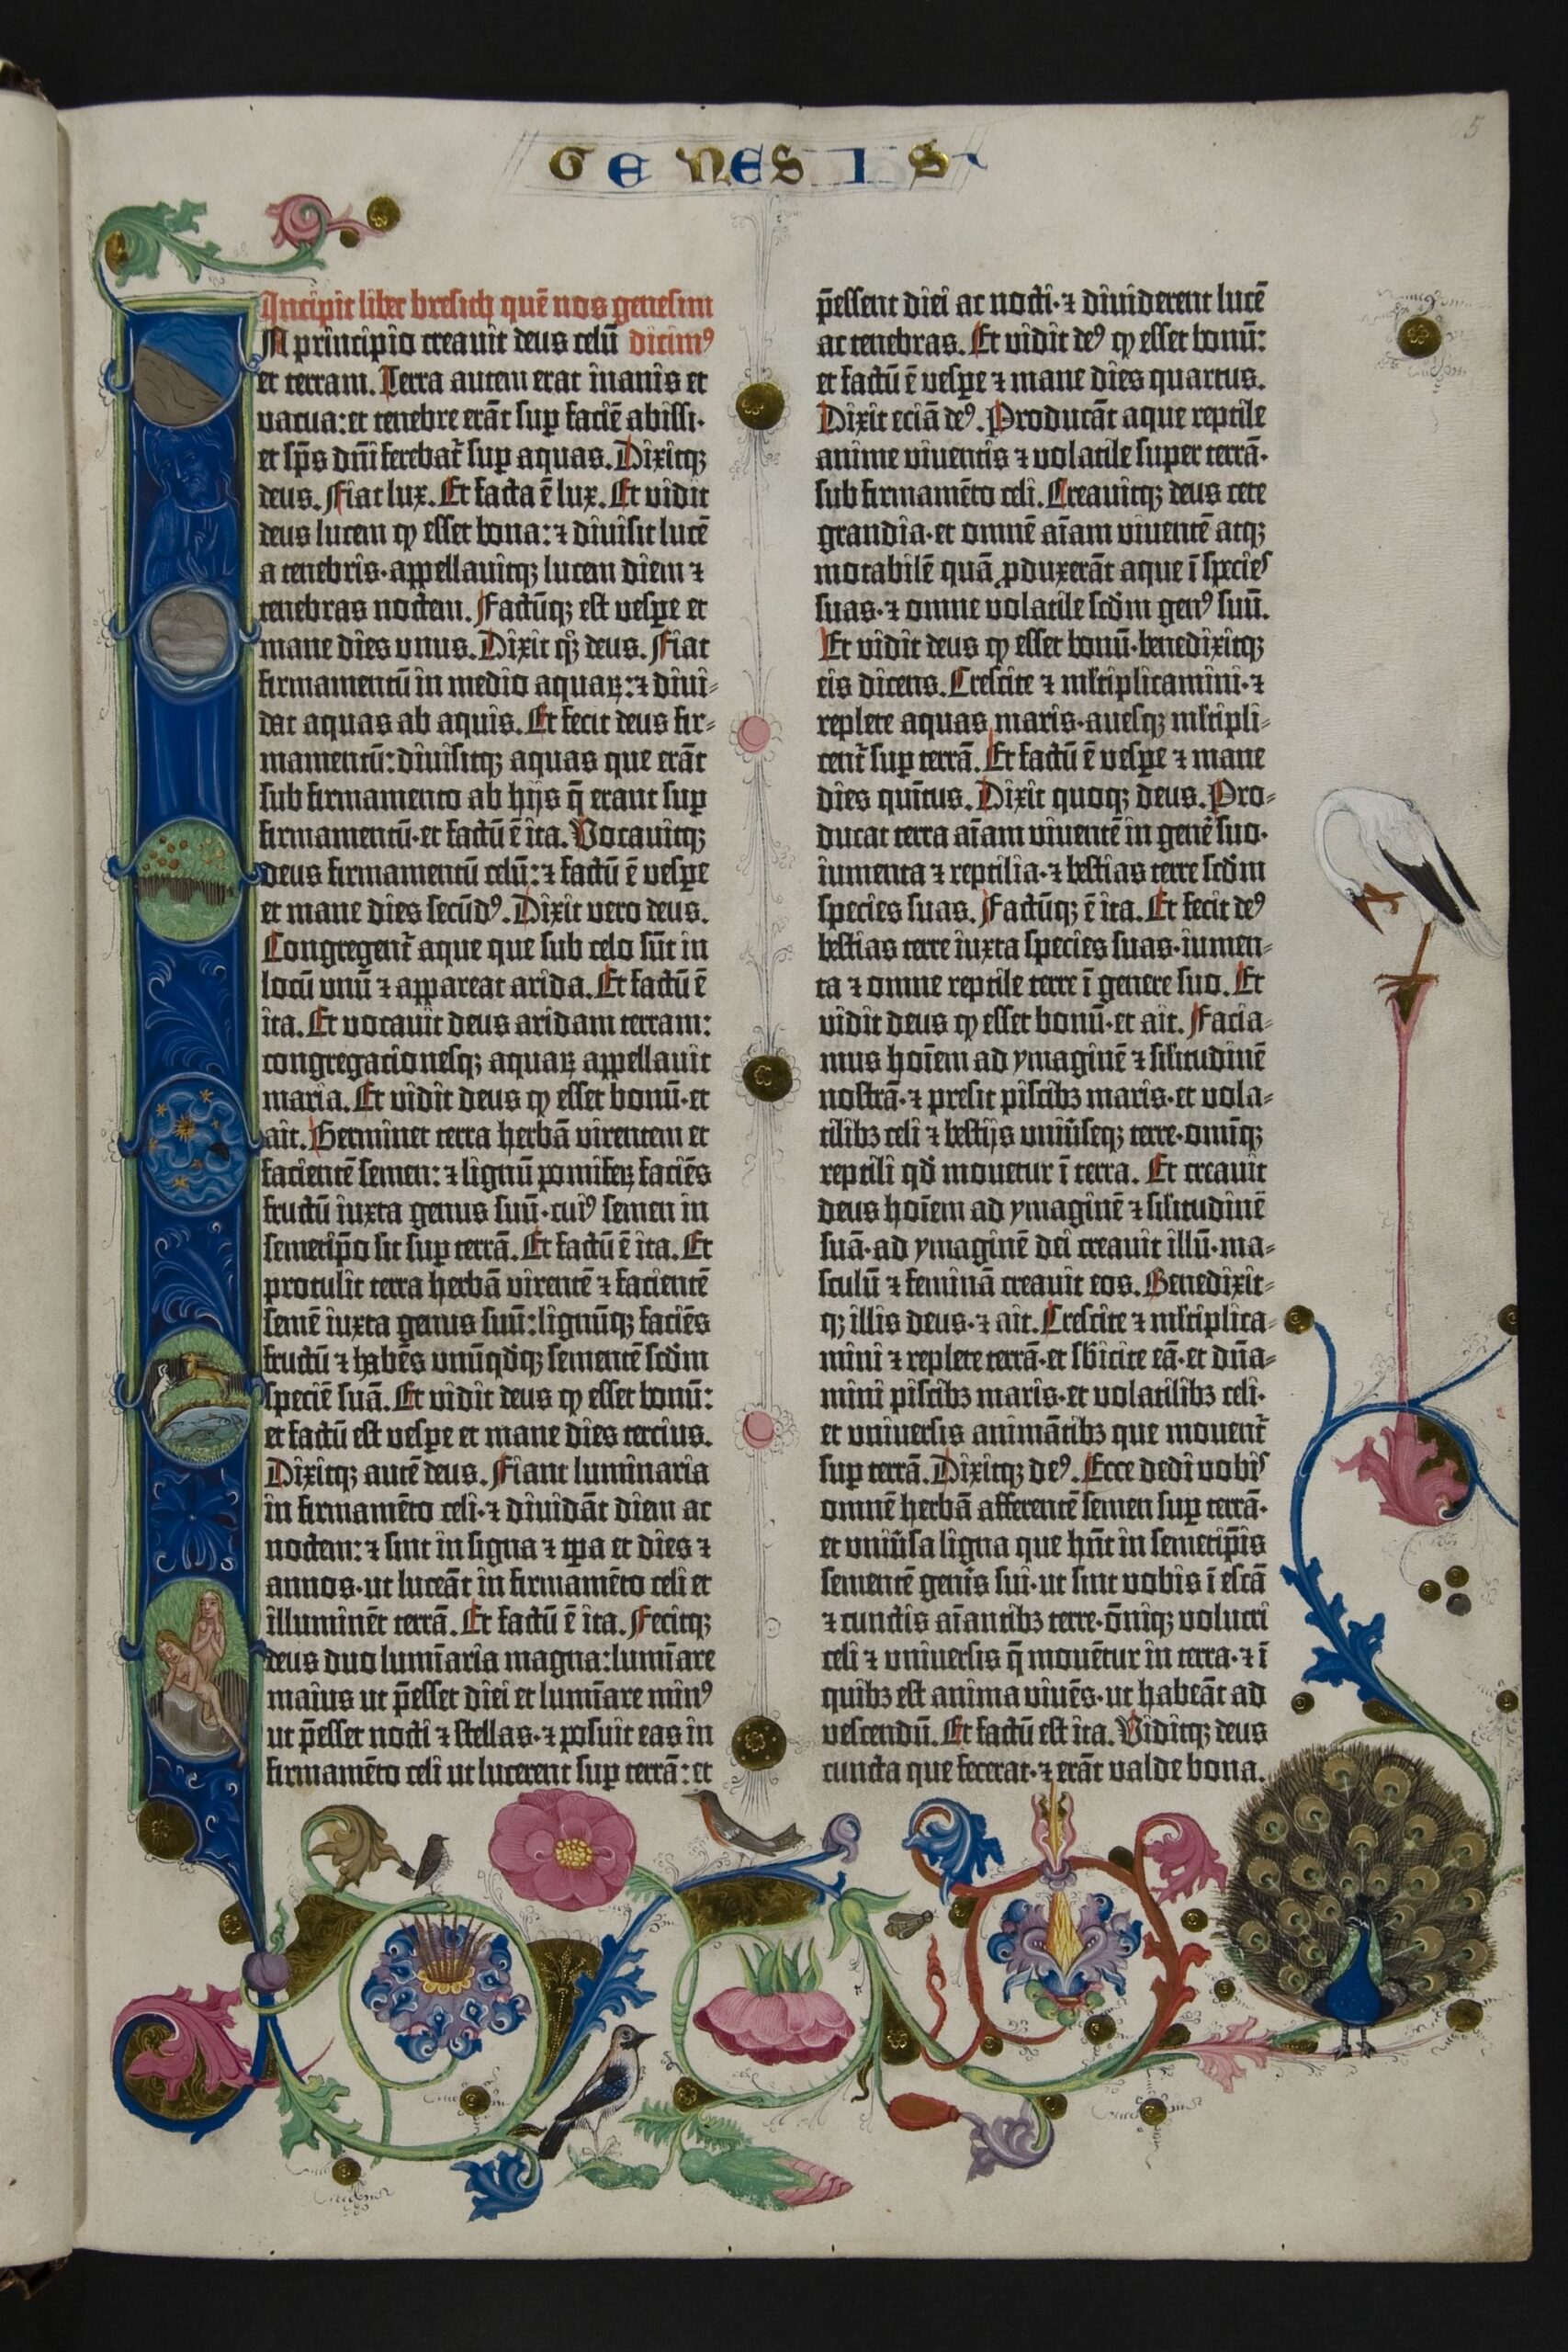 GENESIS
5
Incipit liber bresich quē nos genesim
N principio creauit deus celū dicimꝰ
et terram. Terra autem erat inanis et
vacua: et tenebre erāt sup faciē abissi·
et sp̄s dn̄i ferebat᷑ sup aquas. Dixitqꝫ
deus. Fiat lux. Et facta ē lux. Et vidit
deus lucem ꝙ esset bona: ⁊ diuisit lucē
a tenebris·appellauitqꝫ lucem diem ⁊
tenebras noctem. Factūqꝫ est vespe et
mane dies vnus. Dixit qꝫ deus. Fiat
firmamentū in medio aquaꝝ: ⁊ diui-
dat aquas ab aquis. Et fecit deus fir-
mamentū: diuisitqꝫ aquas que erāt
sub firmamento ab hijs q̄ erant sup
firmamentū·et factū ē ita. Vocauitqꝫ
deus firmamentū celū: ⁊ factū ē vespe
et mane dies secūdꝰ. Dixit vero deus.
Congregent᷑ aque que sub celo sūt in
locū vnū ⁊ appareat arida. Et factū ē
ita. Et vocauit deus aridam terram:
congregacionesqꝫ aquaꝝ appellauit
maria. Et vidit deus ꝙ esset bonū·et
ait. Germinet terra herbā virentem et
facientē semen: ⁊ lignū pomifeꝝ faciēs
fructū iuxta genus suū·cuiꝰ semen in
semetip̄o sit sup terrā. Et factū ē ita. Et
protulit terra herbā virentē ⁊ facientē
semē iuxta genus suū: lignūqꝫ faciēs
fructū ⁊ habēs vnūqdqꝫ sementē scdm
speciē suā. Et vidit deus ꝙ esset bonū:
et factū est vespe et mane dies tercius.
Dixitqꝫ autē deus. Fiant luminaria
in firmamēto celi·⁊ diuidāt diem ac
noctem: ⁊ sint in signa ⁊ tp̄a et dies ⁊
annos·ut luceāt in firmamēto celi et
illuminēt terrā. Et factū ē ita. Fecitqꝫ
deus duo lumīaria magna: lumīare
maius ut p̄esset diei et lumīare minꝰ
ut p̄esset nocti ⁊ stellas·⁊ posuit eas in
firmamēto celi ut lucerent sup terrā: et
p̄essent diei ac nocti·⁊ diuiderent lucē
ac tenebras. Et vidit deꝰ ꝙ esset bonū:
et factū ē vespe ⁊ mane dies quartus.
Dixit eciā deꝰ. Producāt aque reptile
anime viuentis ⁊ volatile super terrā·
sub firmamēto celi. Creauitqꝫ deus cete
grandia·et omnē aīam viuentē atqꝫ
motabilē quā ꝓduxerāt aque ī species
suas·⁊ omne volatile scdm genꝰ suū.
Et vidit deus ꝙ esset bonū·benedixitqꝫ
eis dicens. Crescite ⁊ mltiplicamini·⁊
replete aquas maris·auesqꝫ mltipli-
cent᷑ sup terrā. Et factū ē vespe ⁊ mane
dies quītus. Dixit quoqꝫ deus. Pro-
ducat terra aīam viuentē in genē suo·
iumenta ⁊ reptilia·⁊ bestias terre scdm
species suas. Factūqꝫ ē ita. Et fecit deꝰ
bestias terre iuxta species suas·iumen-
ta ⁊ omne reptile terre ī genere suo. Et
vidit deus ꝙ esset bonū·et ait. Facia-
mus hoīem ad ymaginē ⁊ silitudinē
nostrā·⁊ presit piscibꝫ maris·et vola-
tilibꝫ celi ⁊ bestijs vniūseqꝫ terre·omīqꝫ
reptili qd mouetur ī terra. Et creauit
deus hoīem ad ymaginē ⁊ silitudinē
suā·ad ymaginē dei creauit illū·ma-
sculū ⁊ feminā creauit eos. Benedixit-
qꝫ illis deus·⁊ ait. Crescite ⁊ mltiplica-
mini ⁊ replete terrā·et sbicite eā·et dn̄a-
mini piscibꝫ maris·et volatilibꝫ celi·
et vniuersis animātibꝫ que mouent᷑
sup terrā. Dixitqꝫ deꝰ. Ecce dedi vobis
omnē herbā afferentē semen sup terrā·
et vniūsa ligna que hn̄t in semetip̄is
sementē genīs sui·ut sint vobis ī escā
⁊ cunctis aīantibꝫ terre·om̄iqꝫ volucri
celi ⁊ vniuersis q̄ mouētur in terra·⁊ ī
quibꝫ est anima viuēs·ut habeāt ad
vescendū. Et factū est ita. Viditqꝫ deus
cuncta que fecerat·⁊ erāt valde bona.